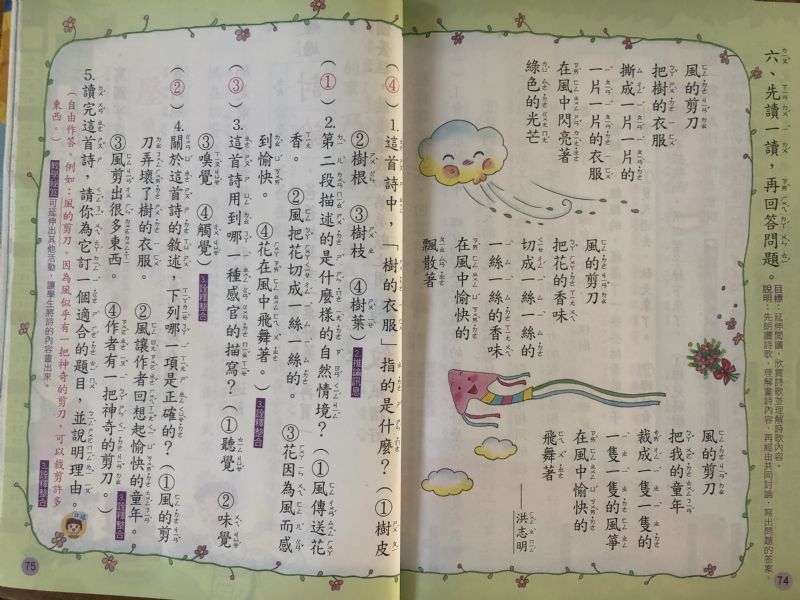 六、先讀一讀，再回答問題。
目標：延伸閱讀，欣賞詩歌並理解詩歌內容。
說明：先朗讀詩歌，理解童詩內容，再經由共同討論，寫出問題的答案。
風的剪刀
把樹的衣服
撕成一片一片的
一片一片的衣服
在風中閃亮著
綠色的光芒
風的剪刀
把花的香味
切成一絲一絲的
一絲一絲的香味
在風中愉快的
飄散著
風的剪刀
把我的童年
裁成一隻一隻的
一隻一隻的風箏
在風中愉快的
飛舞著
——洪志明
74
（④）1.這首詩中，「樹的衣服」指的是什麼？（①樹皮
②樹根　③樹枝　④樹葉）2.推論訊息
（①）2.第二段描述的是什麼樣的自然情境？（①風傳送花
香。　②風把花切成一絲一絲的。　③花因為風而感
到愉快。　④花在風中飛舞著。）3.詮釋整合
（③）3.這首詩用到哪一種感官的描寫？（①聽覺　②味覺
③嗅覺　④觸覺）3.詮釋整合
（②）4.關於這首詩的敘述，下列哪一項是正確的？（①風的剪
刀弄壞了樹的衣服。　②風讓作者回想起愉快的童年。
③風剪出很多東西。　④作者有一把神奇的剪刀。）3.詮釋整合
5.讀完這首詩，請你為它訂一個適合的題目，並說明理由。
（自由作答。例如：風的剪刀。因為風似乎有一把神奇的剪刀，可以裁剪許多
東西。）
可延伸出其他活動，讓學生將詩的內容畫出來。
3.詮釋整合
75